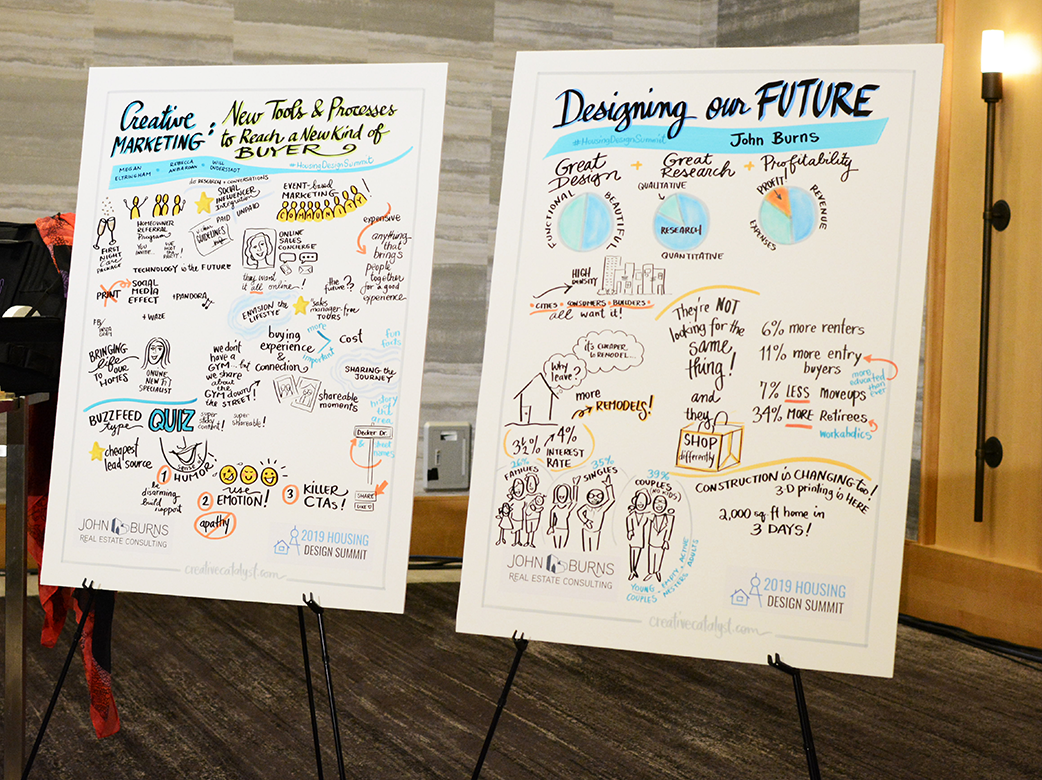 Creative
MARKETING:
New Tools & Processes
to Reach a New Kind of
BUYER
MEGAN
ELTRINGHAM
REBECCA
WILL
#HousingDesignSummit
do RESEARCH + CONVERSATIONS
SOCIAL
INFLUENCER
Integration
PAID
UNPAID
GUIDELINES
EVENT-based
MARKETING
COMMUNITY
HOMEOWNER
REFERRAL
Program
FIRST
NIGHT
Care
PACKAGE
ONLINE
SALES
CONCIERGE
they want
it all online!
expensive
anything
that
brings
people
together
for a good
experience
TECHNOLOGY is the FUTURE
PRINT
SOCIAL
MEDIA
EFFECT
+PANDORA
+ WAZE
the
future?
ENVISION the
LIFESTYLE
sales
manager-free
TOURS
BRINGING
life
TO OUR
HOMES
ONLINE
SPECIALIST
buying
experience
&
connection
more
important
COST
fun
facts
we don't
have a
GYM... but
we share
about
the
GYM down
the STREET!
SHARING the
JOURNEY
shareable
moments
history
the
area
Decker Dr.
& street
names
BUZZFEED
type
QUIZ
super
sticky
content!
super
shareable!
cheapest
lead source
1
use
HUMOR
be
disarming
build
rapport
2
use
EMOTION!
apathy
3
KILLER
CTAs!
SHARE
LIKE IT
JOHN BURNS
REAL ESTATE CONSULTING
2019 HOUSING
DESIGN SUMMIT
creativecatalyst.com
Designing our FUTURE
#HousingDesignSummit
John Burns
Great
Design
+
Great
Research
+
Profitability
FUNCTIONAL
BEAUTIFUL
QUALITATIVE
RESEARCH
QUANTITATIVE
PROFIT!
REVENUE
EXPENSES
HIGH
DENSITY
• CITIES • CONSUMERS • BUILDERS •
all want it!
They're NOT
looking for the
same
thing!
and
they
SHOP
differently
6% more renters
11% more entry
buyers
more
educated
than
ever
7% LESS moveups
34% MORE Retirees
workaholics
it's CHEAPER
to REMODEL...
Why
leave?
more
REMODELS!
3½% 4%
INTEREST
RATE
26%
FAMILIES
35%
SINGLES
39%
COUPLES
(NO KIDS)
YOUNG
COUPLES
• EMPTY
NESTERS
• ACTIVE
ADULTS
CONSTRUCTION is CHANGING too!
3-D printing is HERE
2,000 sq. ft home in
3 DAYS!
JOHN BURNS
REAL ESTATE CONSULTING
2019 HOUSING
DESIGN SUMMIT
creativecatalyst.com